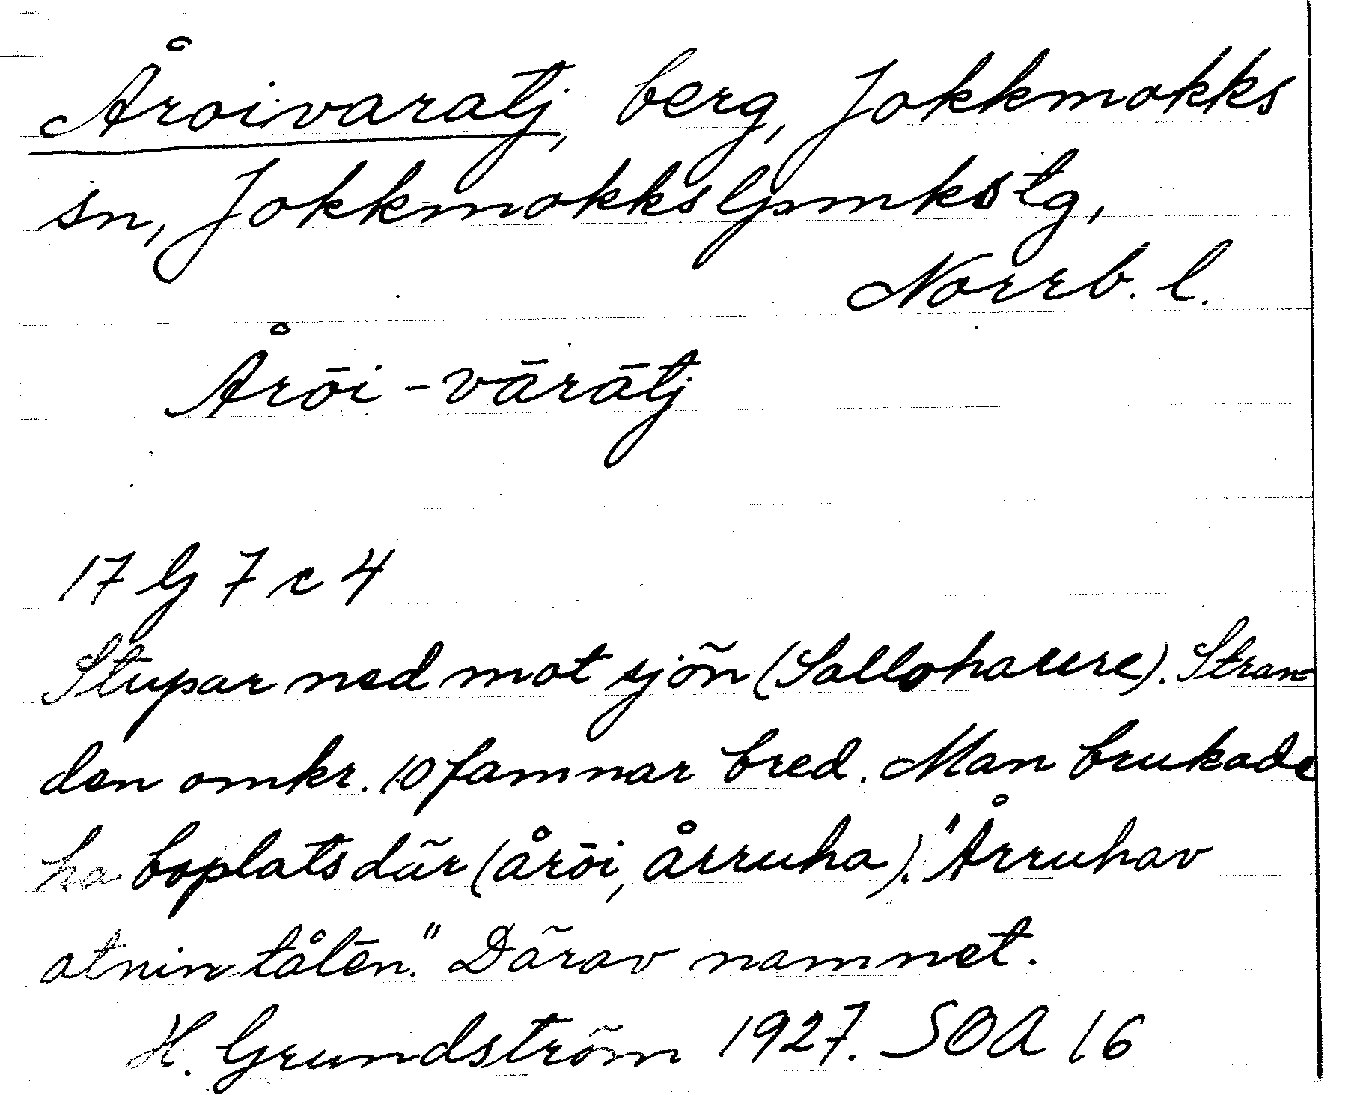 Åroivaratj, berg, Jokkmokks
sn, Jokkmokks lpmkstg,
Norrb. l.
Årōi-vārātj
17 G 7 c 4
Stupar ned mot sjön (Salloharere). Stran-
den omkr. 10 famnar bred. Man brukade
ha boplats där (årōi, årruha). "Årruhav
atnin tålēn." Därav namnet.
H. Grundström 1927. SOA 16